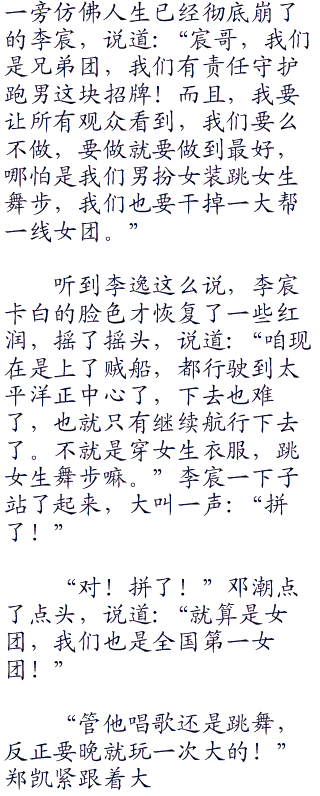 一旁仿佛人生已经彻底崩了
的李宸，说道：“宸哥，我们
是兄弟团，我们有责任守护
跑男这块招牌！而且，我要
让所有观众看到，我们要么
不做，要做就要做到最好，
哪怕是我们男扮女装跳女生
舞步，我们也要干掉一大帮
一线女团。”
听到李逸这么说，李宸
卡白的脸色才恢复了一些红
润，摇了摇头，说道：“咱现
在是上了贼船，都行驶到太
平洋正中心了，下去也难
了，也就只有继续航行下去
了。不就是穿女生衣服，跳
女生舞步嘛。”李宸一下子
站了起来，大叫一声：“拼
了！”
“对！拼了！”邓潮点
了点头，说道：“就算是女
团，我们也是全国第一女
团！”
“管他唱歌还是跳舞，
反正要晚就玩一次大的！”
郑凯紧跟着大